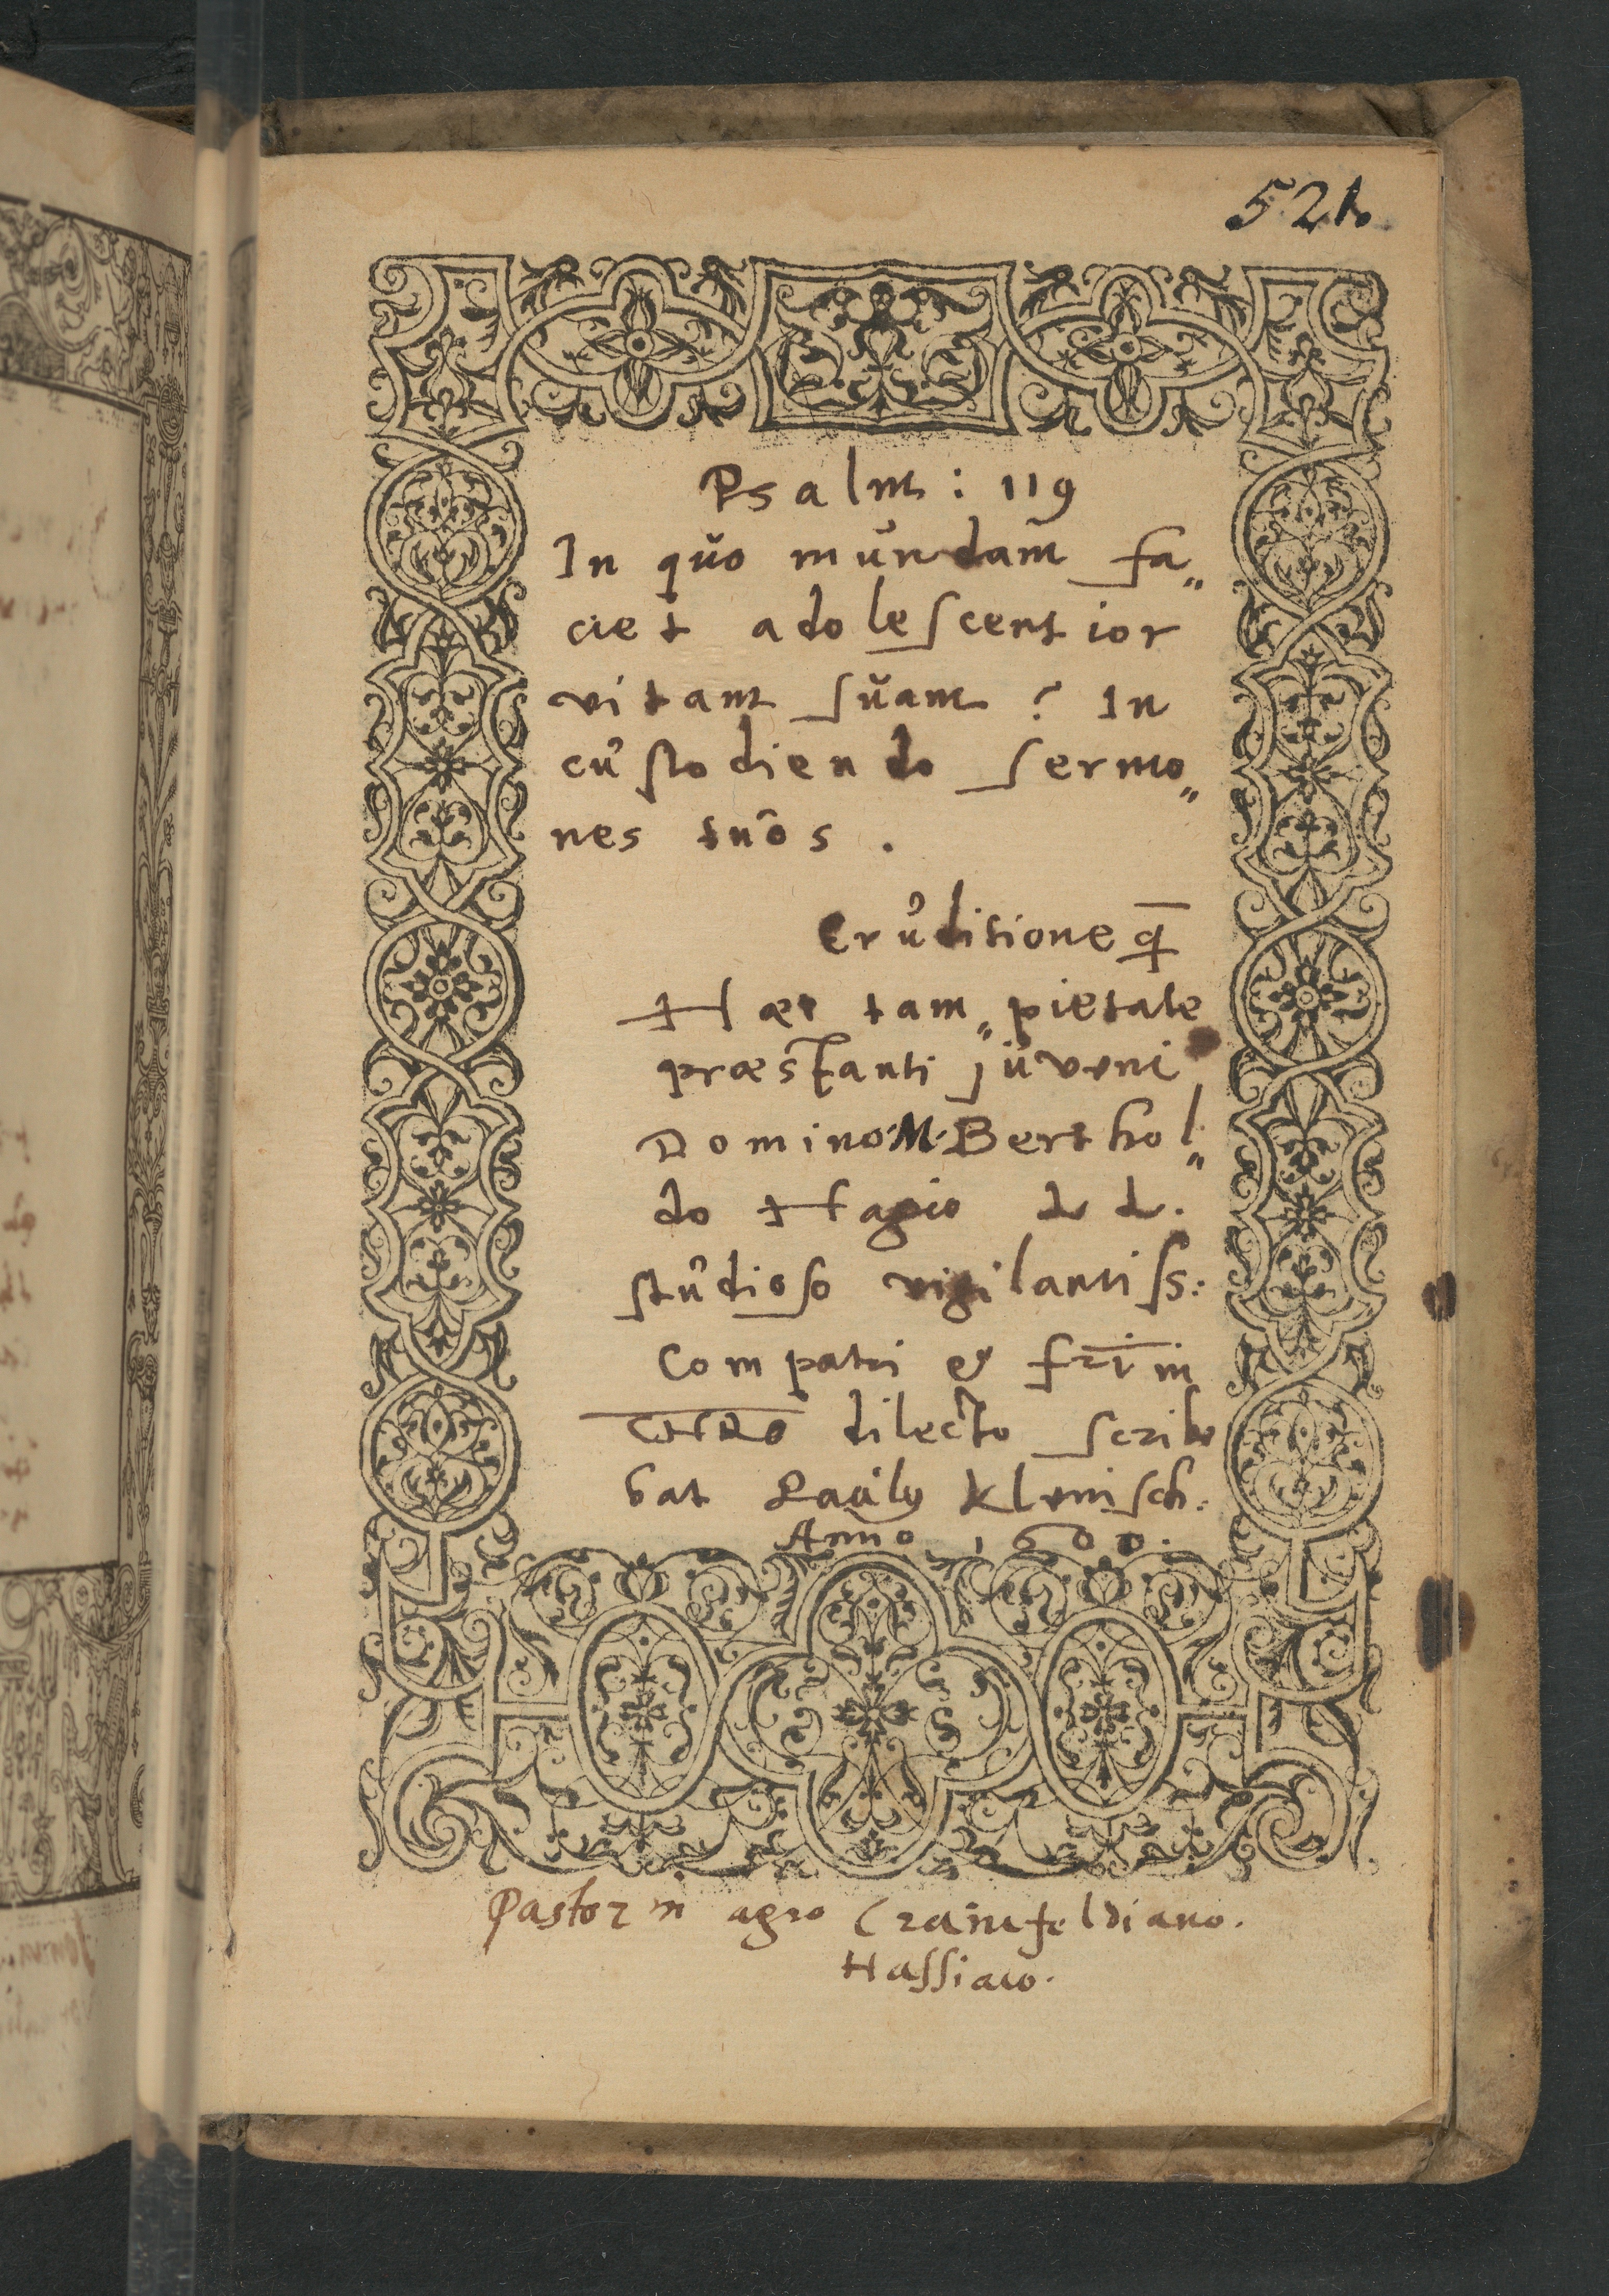 521.
Psalm : 119
In quo mundam fa„
ciet adolescentior
vitam suam ? In
custodiendo sermo„
nes tuos .
Eruditione q̄
Haec tam„ pietate
præstanti juveni
Domino M. Berthol„
do Hagio d d.
studioso vigilantiss:
Compatri & frī in
dilecto scribe
bat Paulus Klenisch:
Anno 1600.
Pastor in agro Crainfeldiano.
Hassiaco.